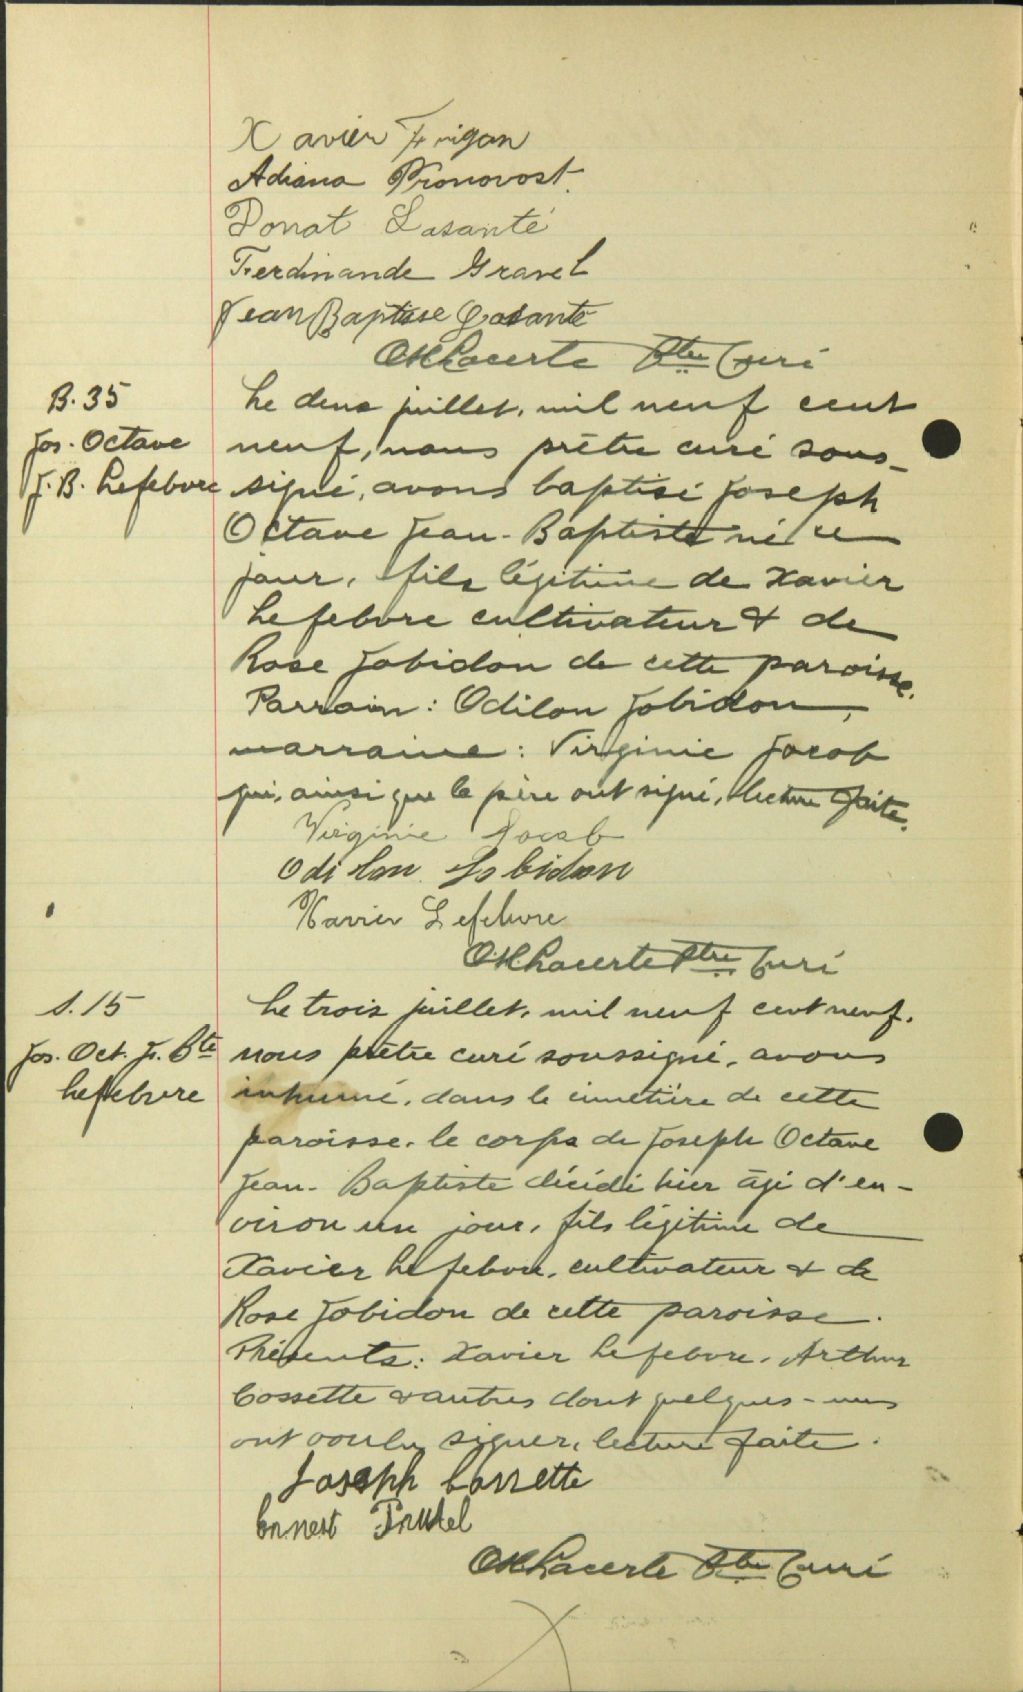 Xavier Frigon
Adiana Pronovost.
Donat Lasanté
Ferdinande Gravel
Jean Baptise Lasanté
O.H. Lacerte Ptre Curé
B. 35
Jos. Octave
J. B. Lefebvre
Le deux juillet, mil neuf cent
neuf, nous prêtre curé sous-
signé, avons baptisé Joseph
Octave Jean-Baptiste né ce
jour, fils légitime de Xavier
Lefebvre cultivateur & de
Rose Jobidon de cette paroisse.
Parrain: Odilon Jobidon,
marraine: Virginie Jacob
qui, ainsi que le père ont signé, lecture faite.
Virginie Jacob
Odilon Jobidon
Xavier Lefebvre
O.H. Lacerte Ptre Curé
S. 15
Jos. Oct. J. Bte
Lefebvre
Le trois juillet, mil neuf cent neuf,
nous prêtre curé soussigné, avons
inhumé, dans le cimetière de cette
paroisse, le corps de Joseph Octave
Jean-Baptiste décédé hier âgé d'en-
viron un jour, fils légitime de
Xavier Lefebvre, cultivateur & de
Rose Jobidon de cette paroisse.
Présents: Xavier Lefebvre, Arthur
Cossette & autres dont quelques-uns
ont voulu signer, lecture faite.
Joseph Cossette
Ernest Trudel
O.H. Lacerte Ptre Curé